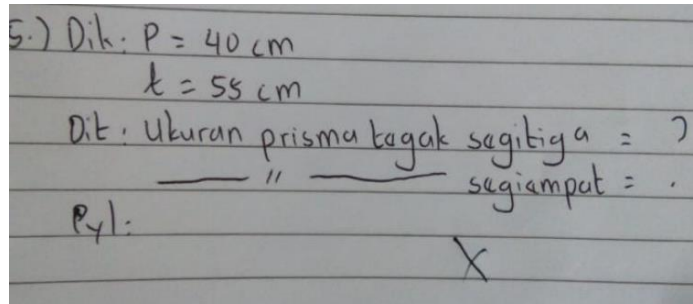 5.) Dik : P = 40 cm
t = 55 cm
Dit : Ukuran prisma tegak segitiga = ?
—— " —— segiempat = .
Pyl :
X